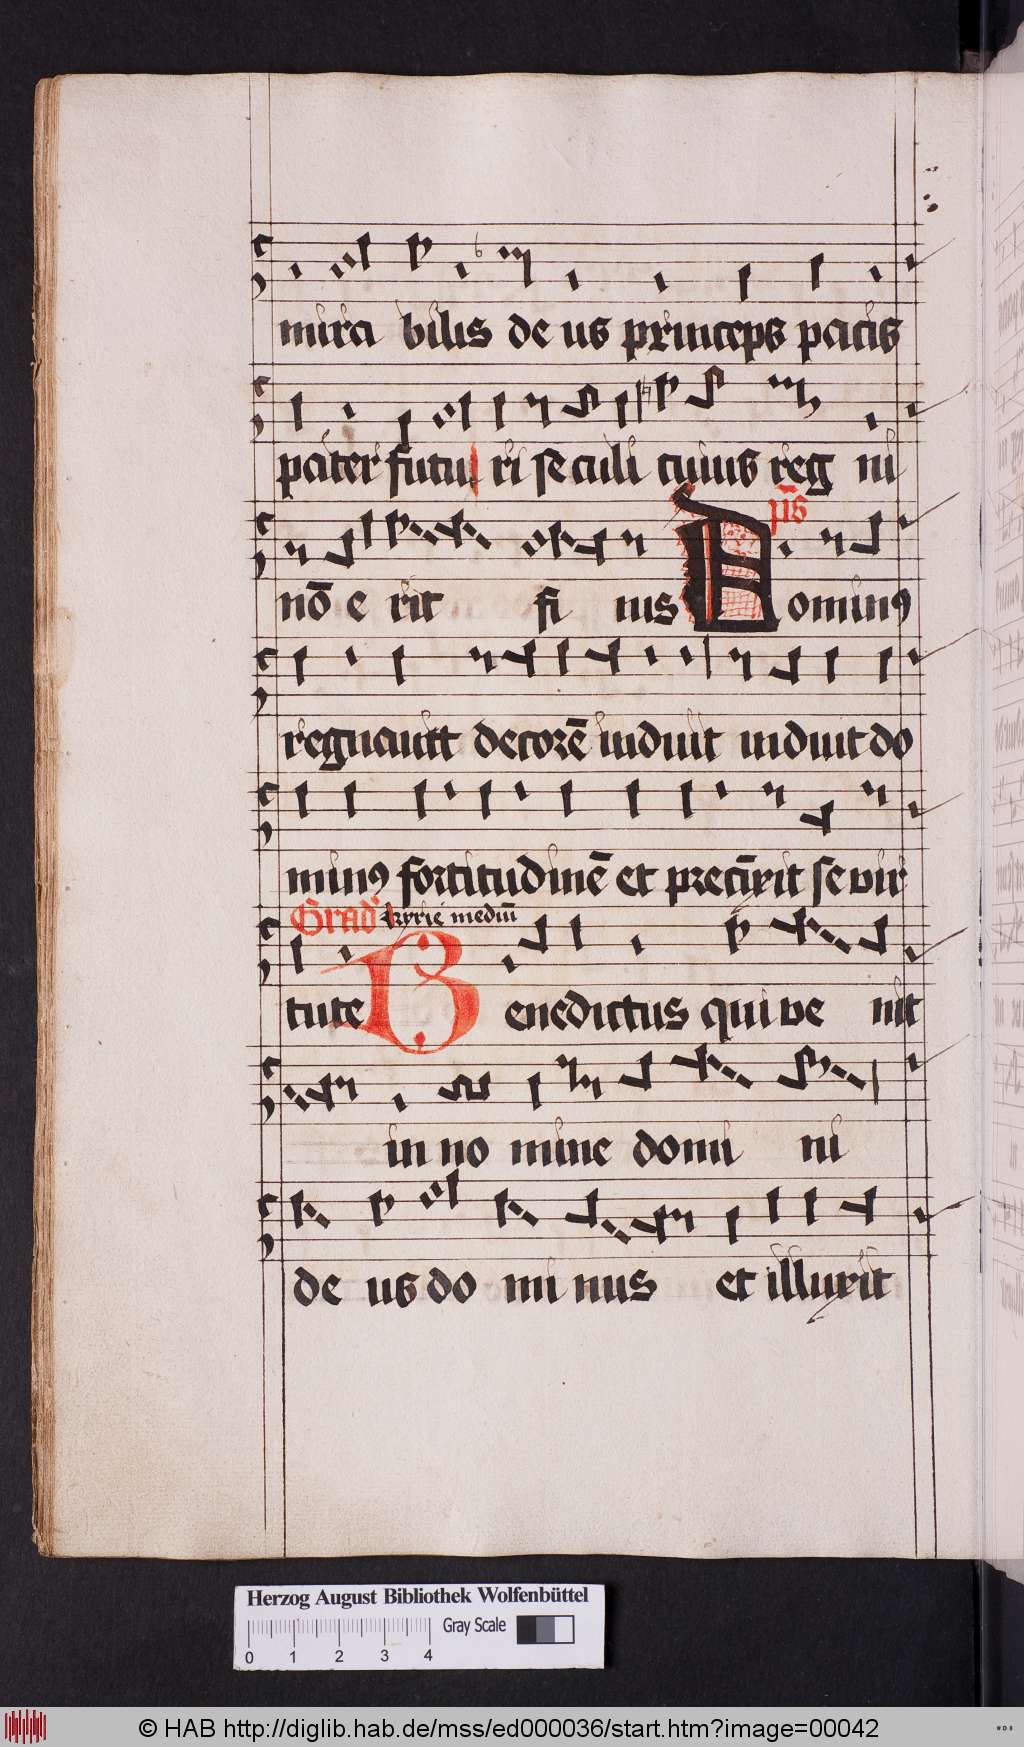 mira bilis de us princeps pacis
pater futu ri seculi cuius reg ni
p̄s
nō e rit fi nis Dominꝰ
regnauit decorē induit induit do
minꝰ fortitudinē et precīxit se vir
Grad' kyrie mediū
tute Benedictus qui ve nit
in no mine domi ni
de us do mi nus et illuxit
Herzog August Bibliothek Wolfenbüttel
Gray Scale
0 1 2 3 4
© HAB http://diglib.hab.de/mss/ed000036/start.htm?image=00042